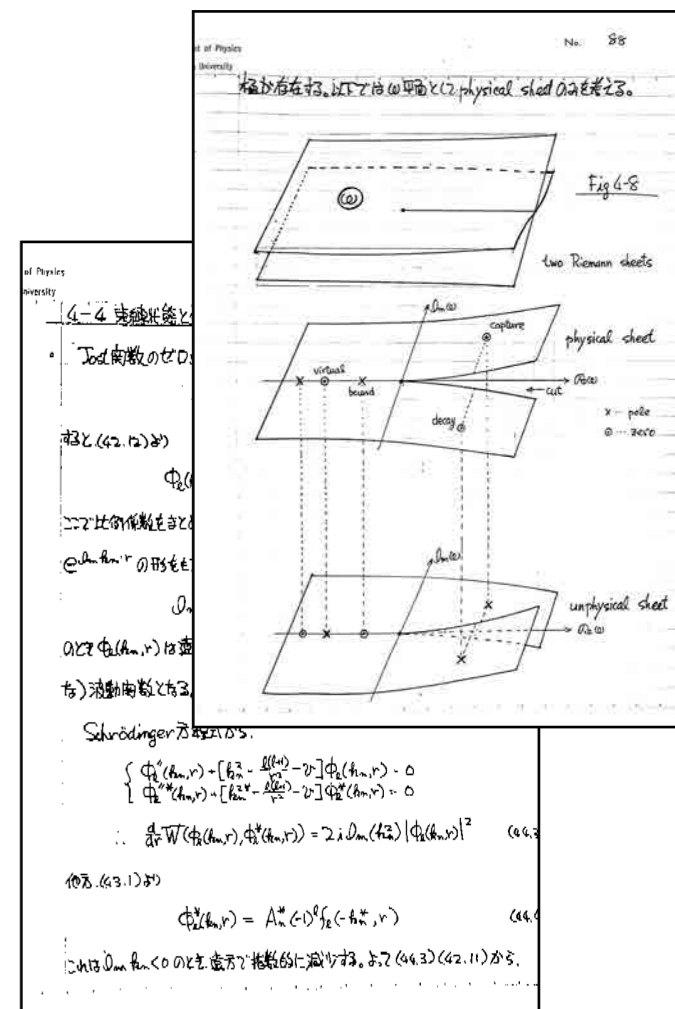 t of Physics
University
No. 88
極が存在する。以下ではω平面としてphysical sheetのみを考える。
Fig 4-8
ω
two Riemann sheets
Im(ω)
capture
physical sheet
virtual
bound
Re(ω)
cut
decay
× … pole
⊙ … zero
Im(ω)
unphysical sheet
Re(ω)
of Physics
University
4-4 束縛状態と
Jost関数のゼロ
すると、(42.12)より
ここで比例係数をまと
の形をも
のとき φℓ(kn,r) は遠
な)波動関数となる。
Schrödinger方程式から、
φℓ''(kn,r) + [kn² - ℓ(ℓ+1)/r² - v]φℓ(kn,r) = 0
φℓ''*(kn,r) + [kn²* - ℓ(ℓ+1)/r² - v]φℓ*(kn,r) = 0
∴ d/dr W(φℓ(kn,r), φℓ*(kn,r)) = 2i Im(kn²)|φℓ(kn,r)|² (44.3
他方、(43.1)より
φℓ*(kn,r) = An*(-1)^ℓ fℓ(-kn*,r) (44.
これはIm kn<0 のとき、遠方で指数的に減少する。よって(44.3)(42.11)から、